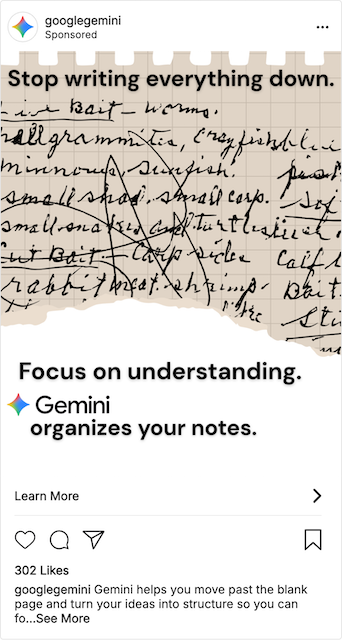 googlegemini
Sponsored
Stop writing everything down.
Live Bait – worms.
small grammites, crayfish
minnows, sunfish.
small shad, small carp.
small snakes and turtles
Cut Bait – Carp sides
rabbit meat. shrimp.
blue
liver.
Calf
Bait
Focus on understanding.
Gemini
organizes your notes.
Learn More
302 Likes
googlegemini Gemini helps you move past the blank
page and turn your ideas into structure so you can
fo...See More